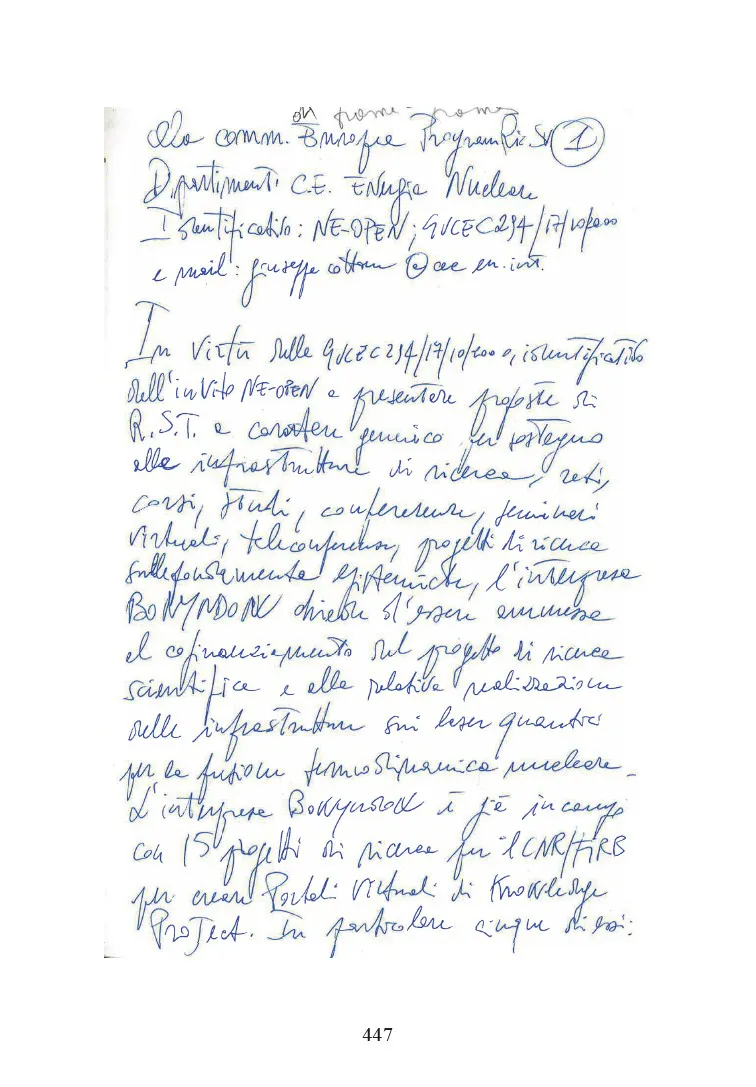 Alla comm. Europea Program Ric. SV 1
Dipartimenti C.E. ENergia Nucleare
Identificativo: NE-OPEN; GUCEC294/17/10/2000
e mail: giuseppe cottone @ cec en. int.
In Virtù delle GUCEC294/17/10/2000, identificativo
dell'invito NE-OPEN a presentare proposte di
R.S.T. a carattere generico per sostegno
alle infrastrutture di ricerca, reti,
corsi, studi, conferenze, seminari
virtuali, teleconferenze, progetti di ricerca
sulle fondamenta epistemiche, l'intrapresa
BONYNDONK chiede d'essere ammessa
al cofinanziamento del progetto di ricerca
scientifica e alla relativa realizzazione
delle infrastrutture sui laser quantici
per la fusione termodinamica nucleare.
L'intrapresa è già in campo
con 15 progetti di ricerca per il CNR/FIRB
per creare Portali Virtuali di Knowledge
Project. In particolare cinque di essi:
447